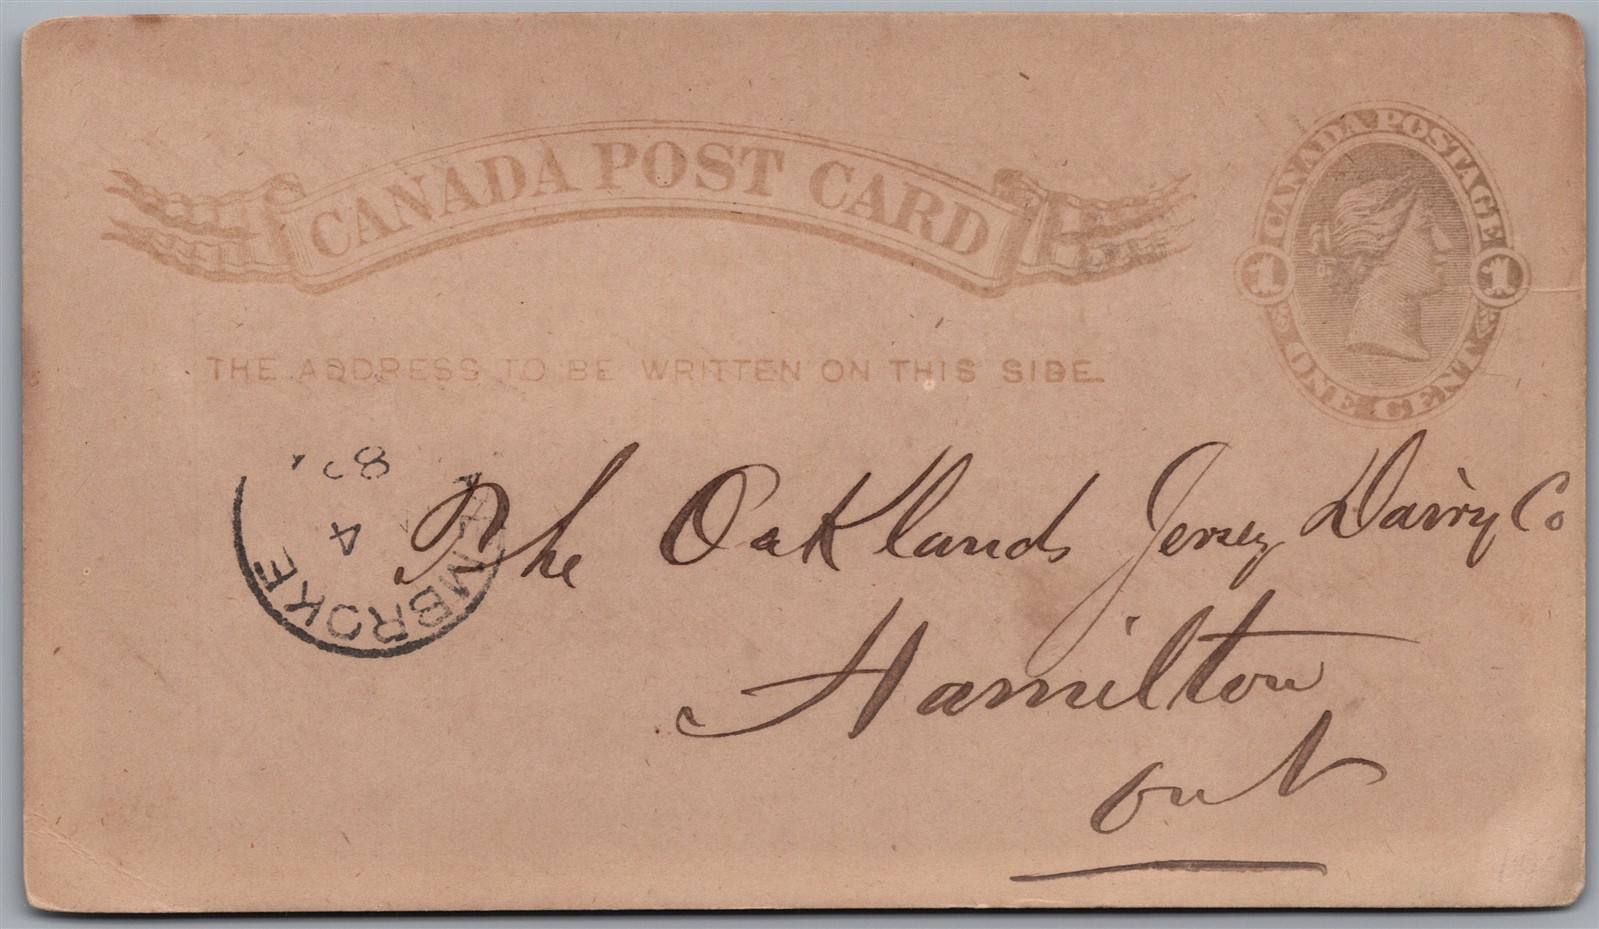 CANADA POST CARD
CANADA POSTAGE
1 1
ONE CENT
THE ADDRESS TO BE WRITTEN ON THIS SIDE.
The Oaklands Jersey Dairy Co
Hamilton
Ont
4
MBROKE